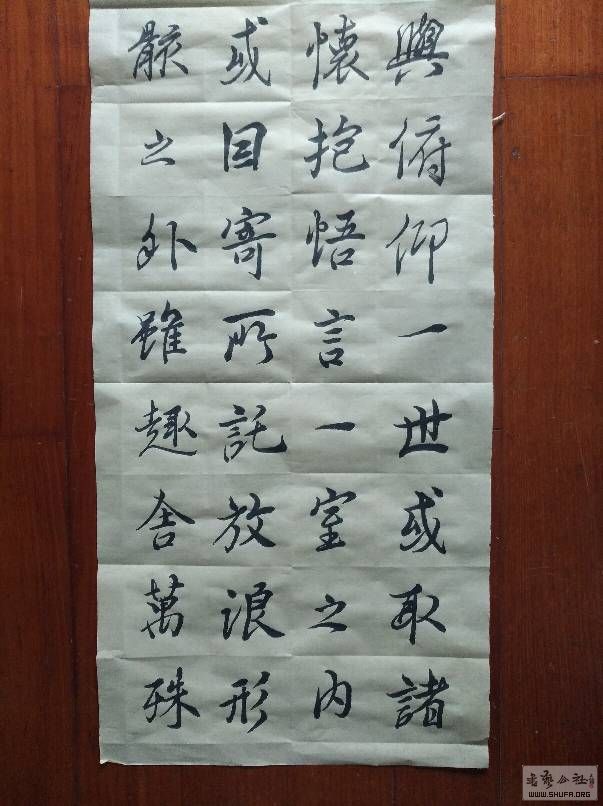 與俯仰一世或取諸
懷抱悟言一室之內
或因寄所託放浪形
骸之外雖趣舍萬殊
書藝公社
WWW.SHUFA.ORG